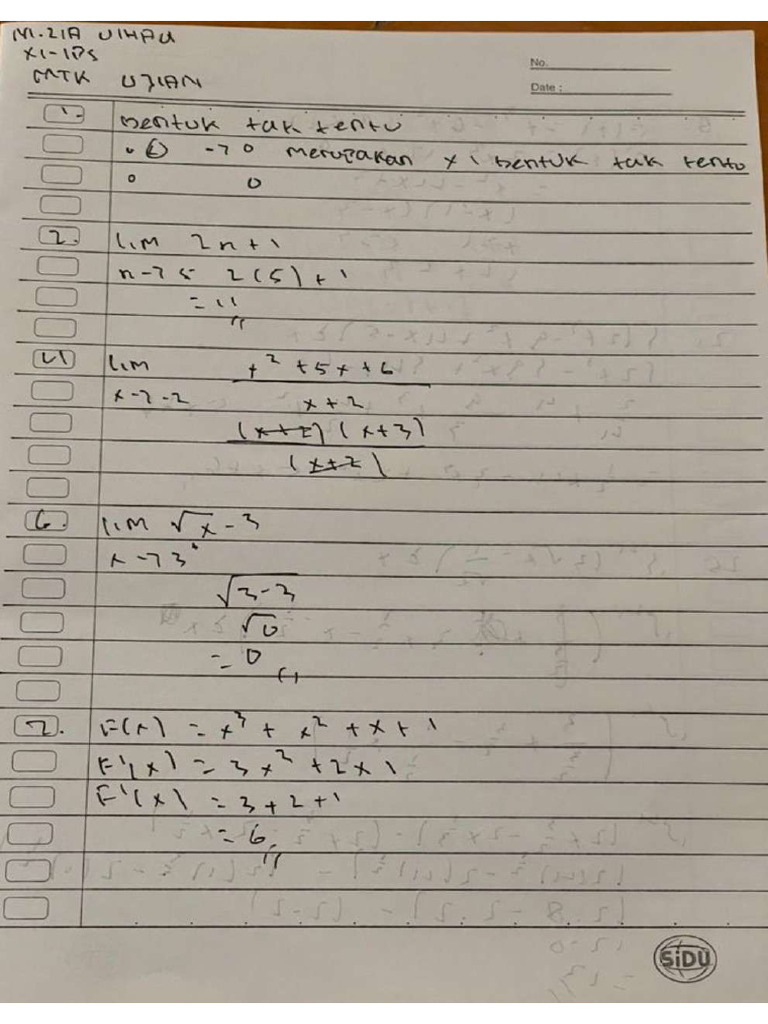 M. ZIA ULHAQ
XI-IPS
MTK UJIAN
No.
Date :
1. Bentuk tak tentu
0 → 0 merupakan x 1 bentuk tak tentu
0 0
2. lim 2n+1
n→5 2(5)+1
= 11
lim x² + 5x + 6
x→-2 x+2
(x+2)(x+3)
(x+2)
6. lim √x - 3
x→3
√3-3
√0
= 0
7. F(x) = x³ + x² + x + 1
F'(x) = 3x² + 2x 1
F'(x) = 3+2+1
= 6
SiDU